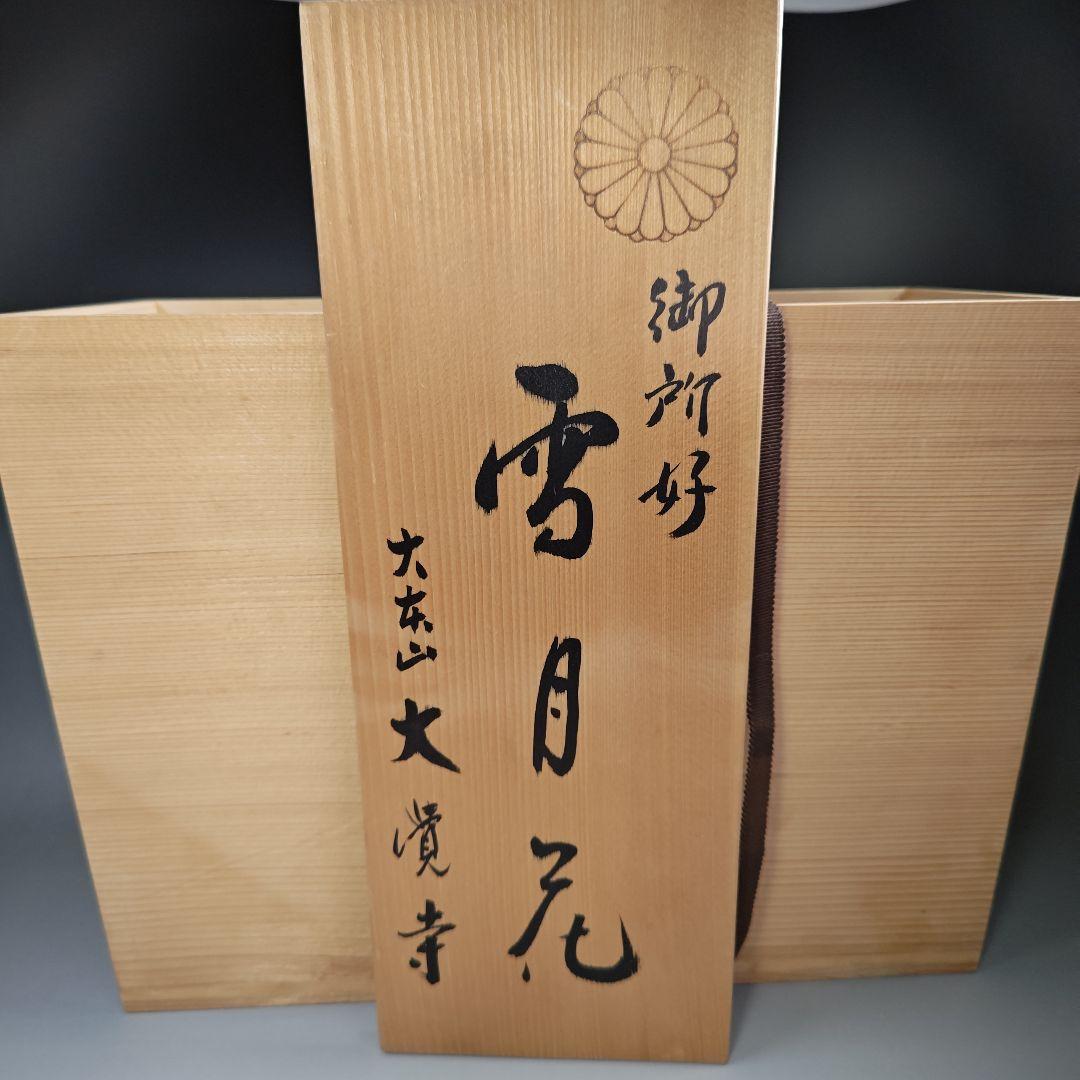 御所好
雪月花
大本山大覺寺